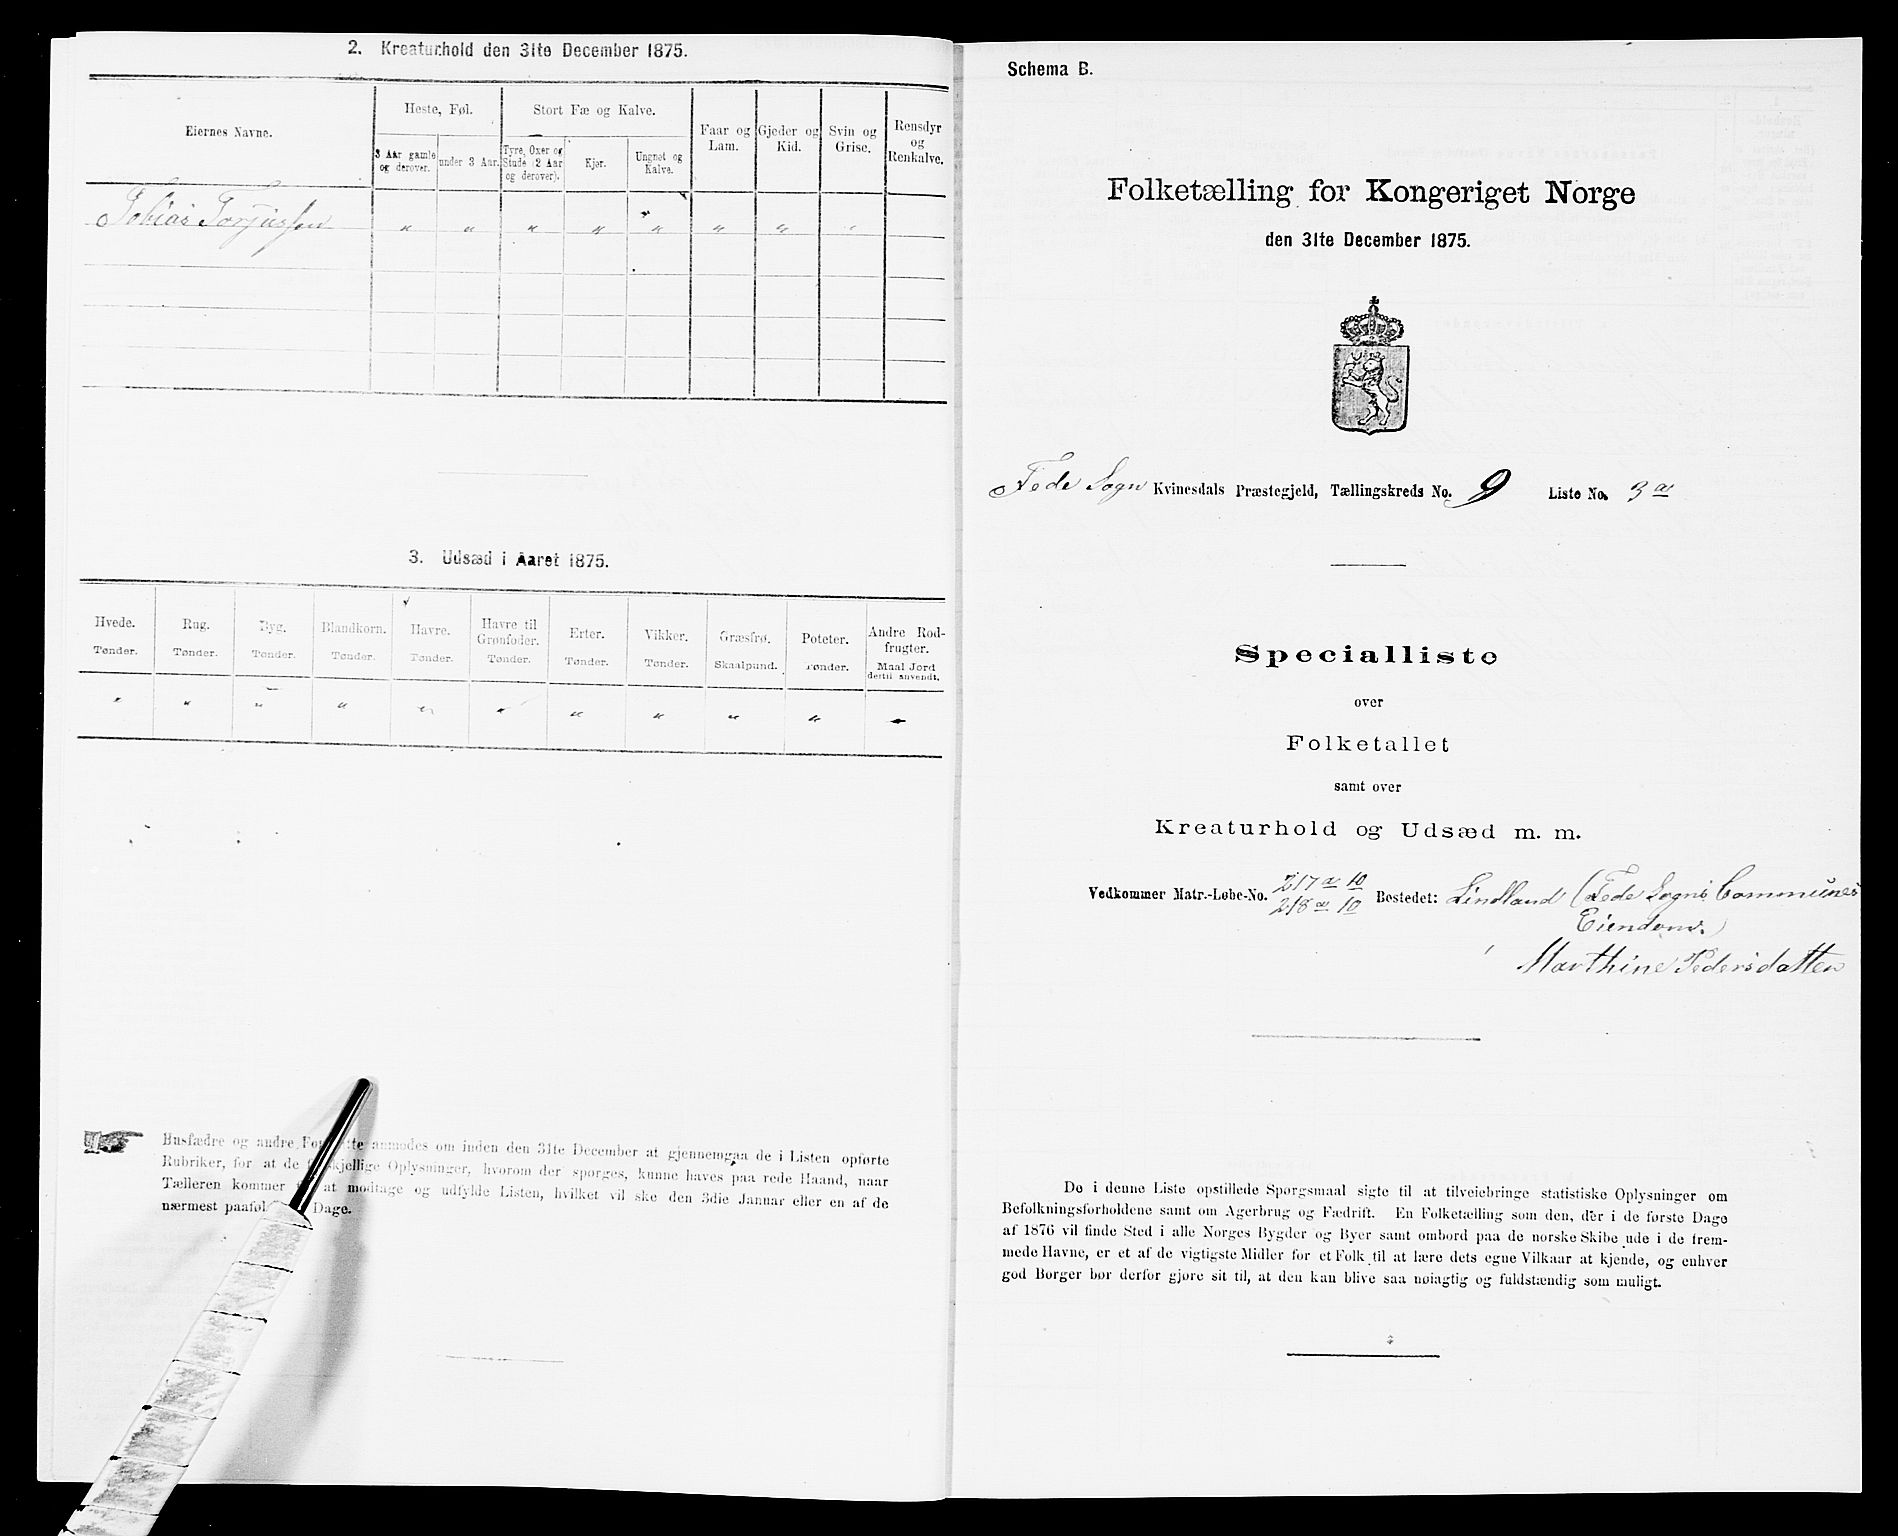 2. Kreaturhold den 31te December 1875.
Eiernes Navne.
Heste, Føl.
Stort Fæ og Kalve.
Faar og
Lam.
Gjeder og
Kid.
Svin og
Grise.
Rensdyr
og
Renkalve.
3 Aar gamle
og derover.
under 3 Aar.
Tyre, Oxer og
Stude (2 Aar
og derover).
Kjør.
Ungnøt og
Kalve.
Tobias Torjussen " " " " " " " "
3. Udsæd i Aaret 1875.
Hvede.
Tønder.
Rug.
Tønder.
Byg.
Tønder.
Blandkorn.
Tønder.
Havre.
Tønder.
Havre til
Grønfoder.
Tønder.
Erter.
Tønder.
Vikker.
Tønder.
Græsfrø.
Skaalpund.
Poteter.
Tønder.
Andre Rod-
frugter.
Maal Jord
dertil anvendt.
" " " " " " " " " " "
Husfædre og andre anmodes om inden den 31te December at gjennemgaa de i Listen opførte
Rubriker, for at de Oplysninger, hvorom der spørges, kunne haves paa rede Haand, naar
Tælleren kommer at modtage og udfylde Listen, hvilket vil ske den 3die Januar eller en af de
nærmest Dage.
Schema B.
Folketælling for Kongeriget Norge
den 31te December 1875.
Fede Sogn Kvinesdals Præstegjeld, Tællingskreds No. 9 Liste No. 3 a
Specialliste
over
Folketallet
samt over
Kreaturhold og Udsæd m. m.
Vedkommer Matr.-Løbe-No. 217 a 10 Bostedet: Lindland (Fede Sogns Communes
218 a 10
Eiendom.)
Marthine Pedersdatter
De i denne Liste opstillede Spørgsmaal sigte til at tilveiebringe statistiske Oplysninger om
Befolkningsforholdene samt om Agerbrug og Fædrift. En Folketælling som den, der i de første Dage
af 1876 vil finde Sted i alle Norges Bygder og Byer samt ombord paa de norske Skibe ude i de frem-
mede Havne, er et af de vigtigste Midler for et Folk til at lære dets egne Vilkaar at kjende, og enhver
god Borger bør derfor gjøre sit til, at den kan blive saa nøiagtig og fuldstændig som muligt.